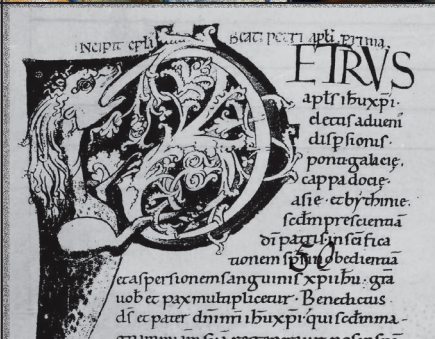 INCIPIT EPLA BEATI PETRI APLI PRIMA
PETRVS
apls ihuxpi·
electis adueni
dispsionis·
ponti·galacie·
cappadocie·
asie·etbythinie·
scdm prescientiā
di patris inscifica
tionem sps inobedientiā
etaspersionem sanguinis xpi ihu· gra
uob et pax multiplicetur· Benedictus
ds et pater dni nri ihuxpi· qui scdm ma-